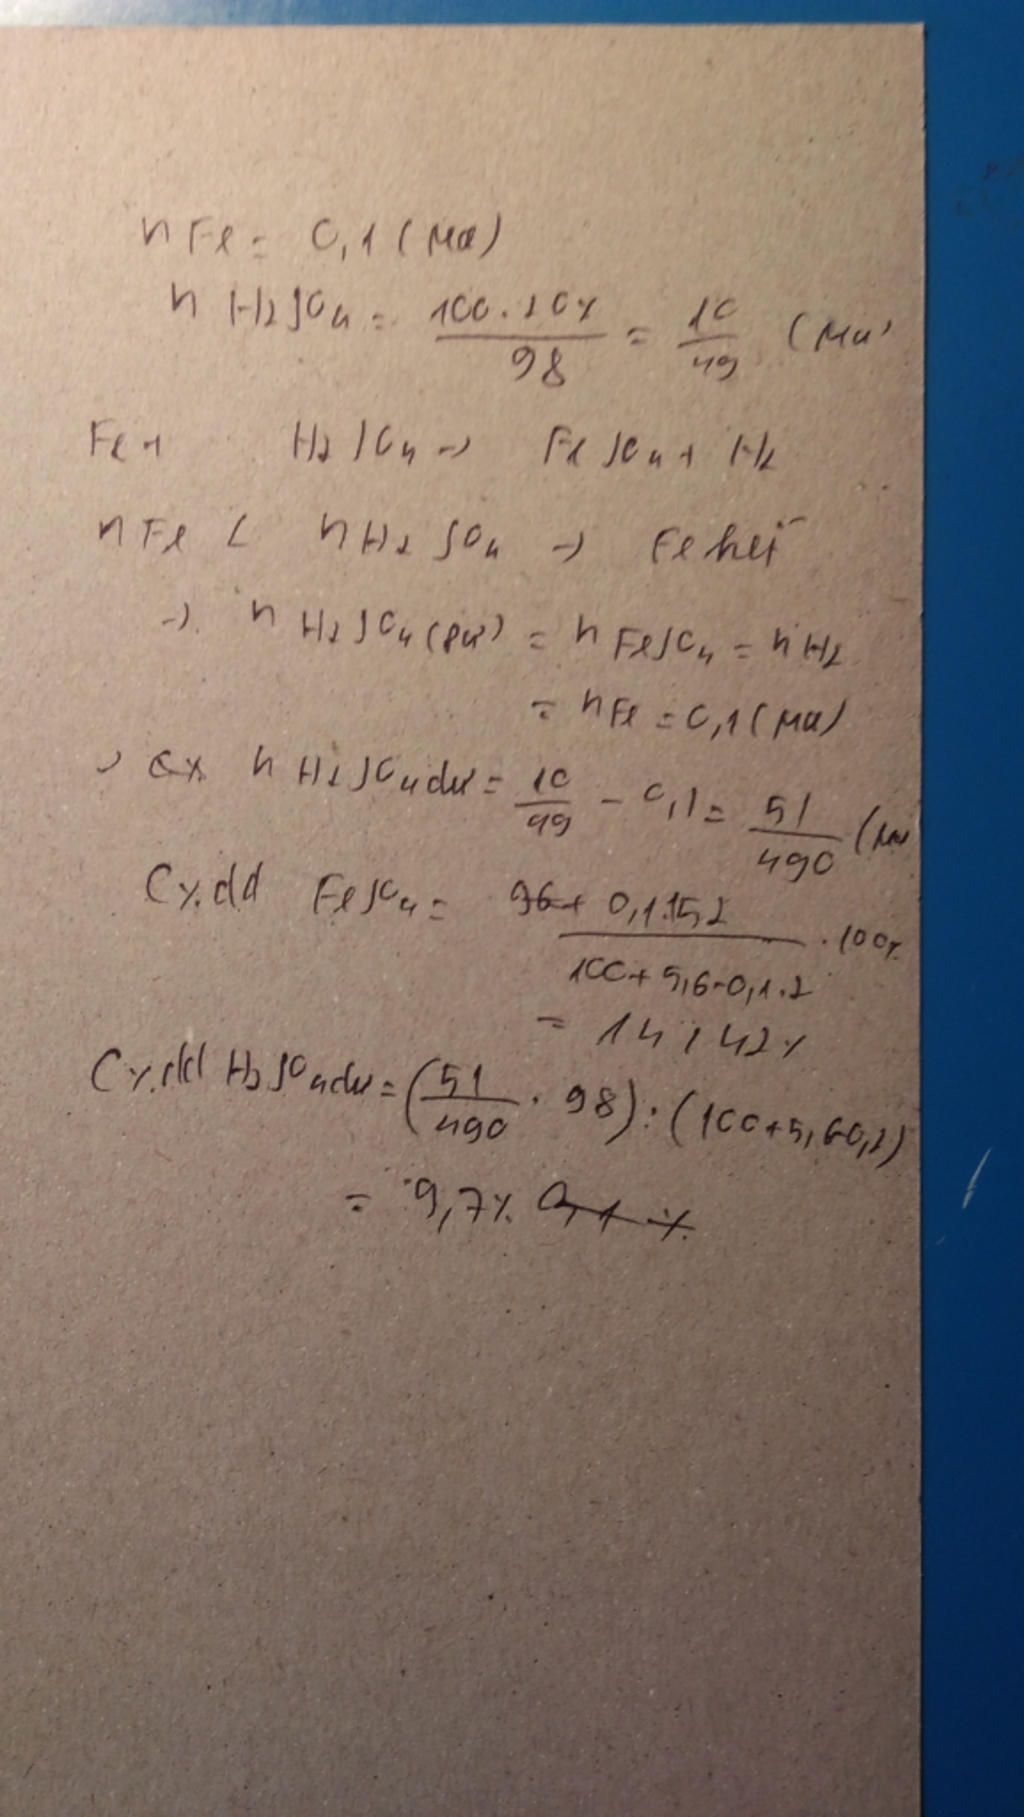 nFe = 0,1 (Mol)
nH2SO4 = 100.20% / 98 = 10/49 (Mol)
Fe + H2SO4 -> FeSO4 + H2
nFe < nH2SO4 -> Fe hết
-> nH2SO4 (pứ) = nFeSO4 = nH2
= nFe = 0,1 (Mol)
-> nH2SO4 dư = 10/49 - 0,1 = 51/490 (Mol
C%.dd FeSO4 = 0,1.152 / 100+5,6-0,1.2 .100%
= 14,42%
C%.dd H2SO4 dư = (51/490 . 98) : (100+5,6-0,2)
= 9,7%